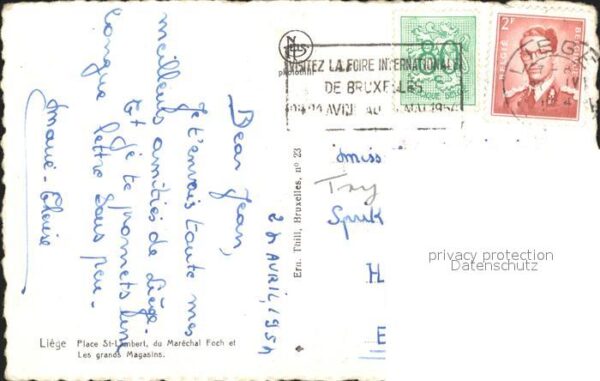 24 AVRIL, 1954
Dear Jean,
Je t'envois toute mes
meilleurs amitiés de Liège.
Et je te promets une
longue lettre sous peu.
Marie-Eloise
Liège Place St-Lambert, du Maréchal Foch et
Les grands Magasins.
Ern. Thill, Bruxelles, nº 23
VISITEZ LA FOIRE INTERNATIONALE
DE BRUXELLES
AVRIL AU MAI 1954
80
2F
BELGIE
BELGIQUE
LIEGE
Miss
Try
H
E
privacy protection
Datenschutz